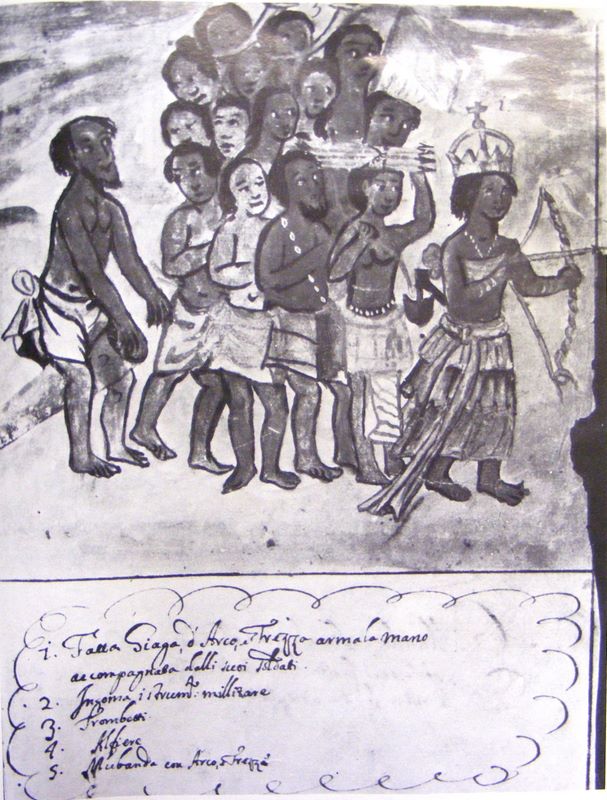 1. Fatta Giaga d'Arco, e Frezza armala mano
accompagnata dalli suoi soldati.
2. Ingoma istrumti millitare
3. Trombetti.
4. Alfiere
5. Mubanda con Arco, e Frezze